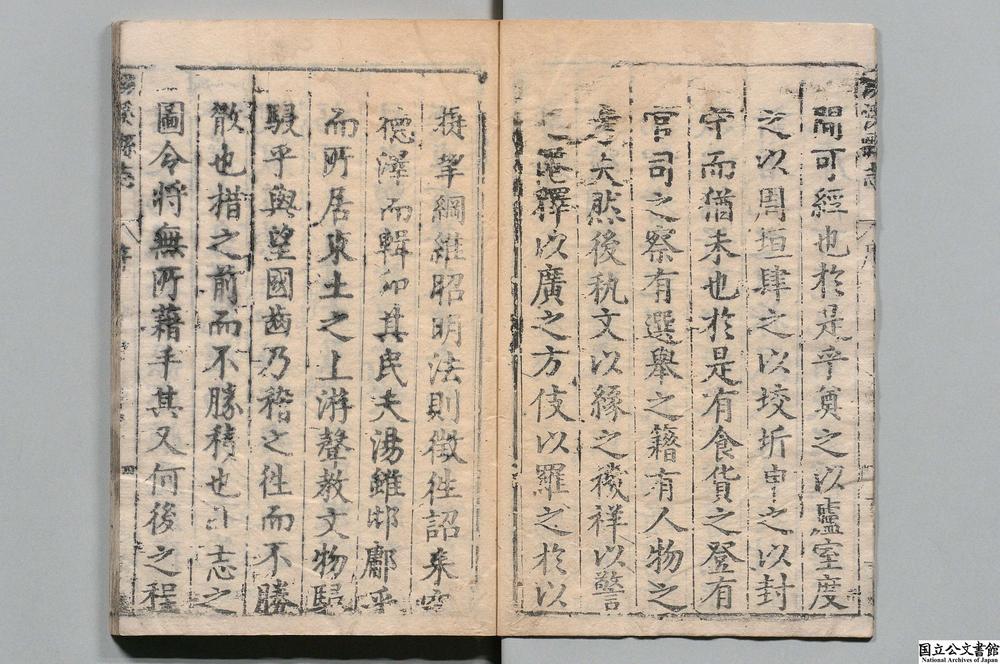 間可經也於是乎奠之以廬室度
之以周垣肆之以埒圻申之以封
守而猶未也於是有食貨之登有
官司之察有選舉之籍有人物之
夫然後執文以緣之禨祥以警
之選擇以廣之方伎以羅之於以
挈綱維昭明法則徵往詔來
德澤而輯卬其民夫湯雖邶鄘乎
而所居東土之上游聲教文物駸
駸乎與望國齒乃稽之往而不勝
散也措之前而不勝積也志之
圖今將無所藉手其又何後之程
國立公文書館
National Archives of Japan